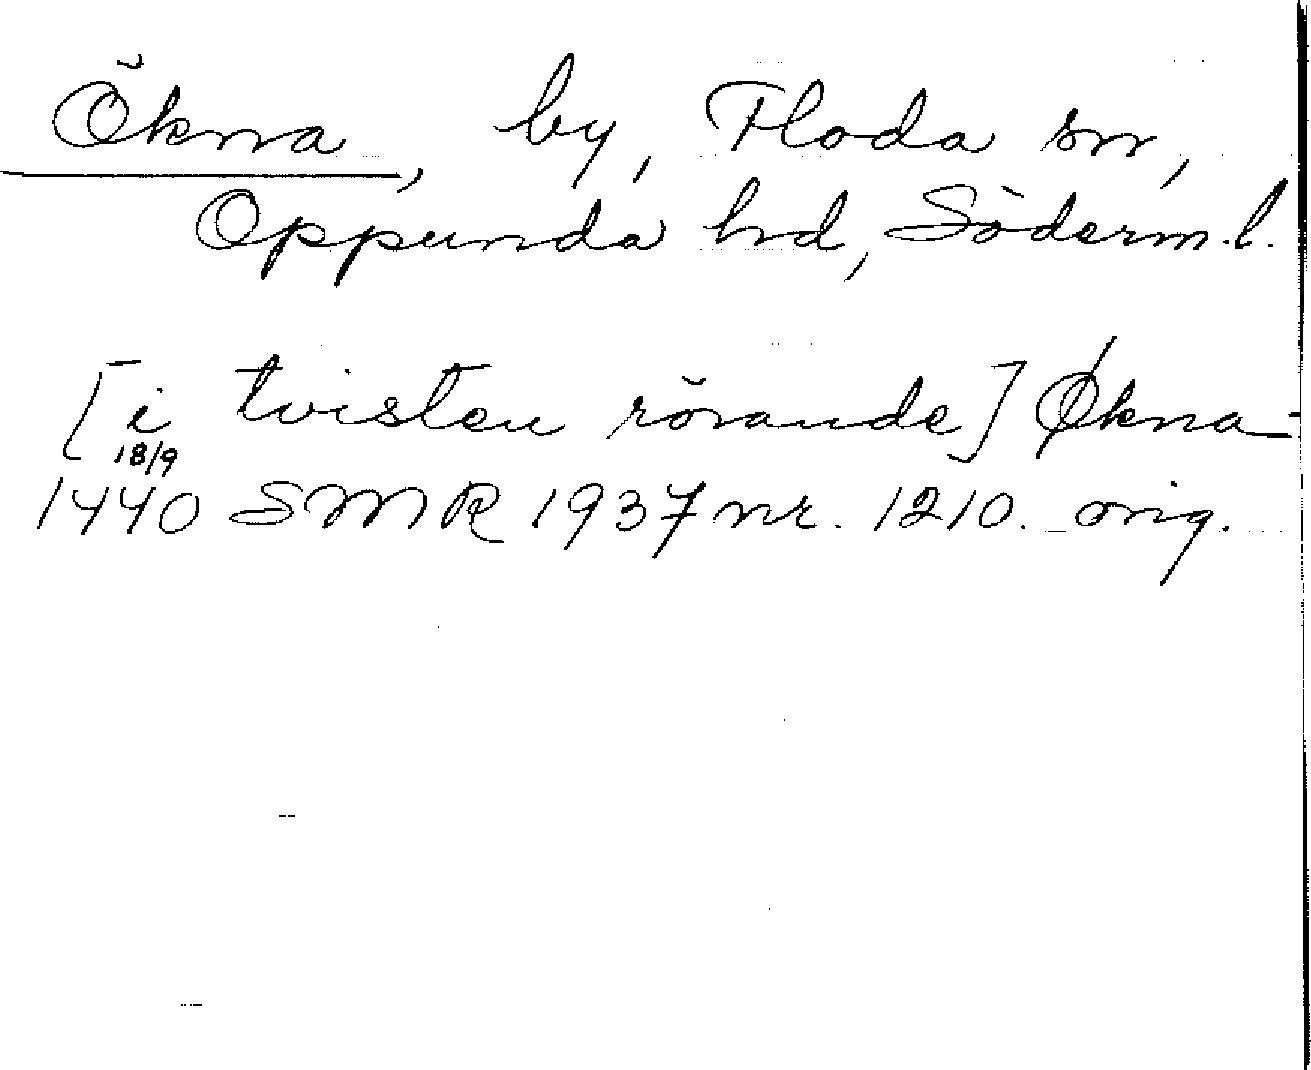 Ökna, by, Floda sn,
Oppunda hd, Söderm.l.
[i tvisten rörande] Økna
18/9
1440 SMR 1937 nr. 1210. orig.